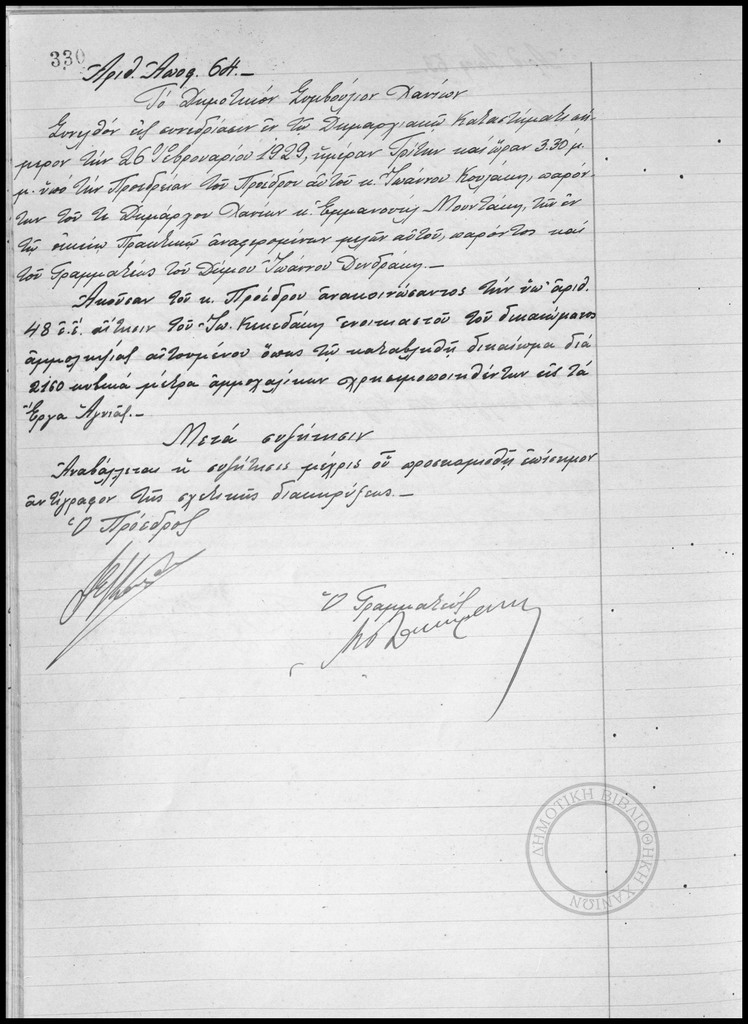 330
Ἀριθ. Ἀποφ. 64.-
Τό Δημοτικόν Συμβούλιον Χανίων
Συνελθόν εἰς συνεδρίασιν ἐν τῷ Δημαρχιακῷ Καταστήματι σή-
μερον τήν 26 Φεβρουαρίου 1929, ἡμέραν Τρίτην καί ὥραν 3.30 μ.
μ. ὑπό τήν Προεδρείαν τοῦ Προέδρου αὐτοῦ κ. Ἰωάννου, παρόν-
των τοῦ κ. Δημάρχου Χανίων κ. Ἐμμανουήλ Μουντάκη, τῶν ἐν
τῷ οἰκείῳ Πρακτικῷ ἀναφερομένων μελῶν αὐτοῦ, παρόντος καί
τοῦ Γραμματέως τοῦ Δήμου Ἰωάννου Δενδράκη.-
Ἀκοῦσαν τοῦ κ. Προέδρου ἀνακοινώσαντος τήν ὑπ' ἀριθ.
48 ἐ.ἔ. αἴτησιν τοῦ Ἰω. ἐνοικιαστοῦ τοῦ δικαιώματος
ἀμμοληψίας αἰτουμένου ὅπως τῷ καταβληθῇ δικαίωμα διά
2160 κυβικά μέτρα ἀμμοχαλίκων χρησιμοποιηθέντων εἰς τά
Ἔργα Ἁγυιᾶς.-
Μετά συζήτησιν
Ἀναβάλλεται ἡ συζήτησις μέχρις οὗ προσκομισθῇ ἐπίσημον
ἀντίγραφον τῆς σχετικῆς διακηρύξεως.-
Ὁ Πρόεδρος
Ὁ Γραμματεύς
ΔΗΜΟΤΙΚΗ ΒΙΒΛΙΟΘΗΚΗ ΧΑΝΙΩΝ